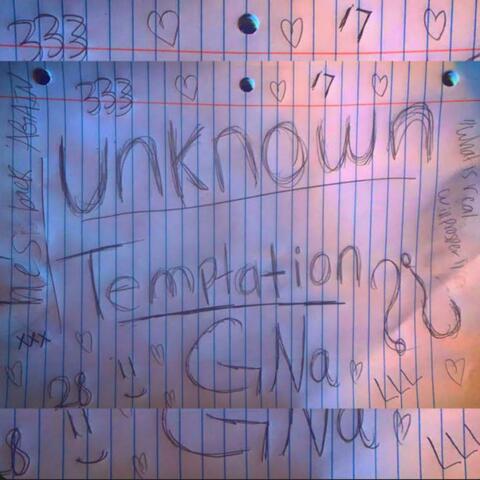 333 '17
333 '17
unknown
Temptation
GNa
he's back AGAIN
"what is real will prosper"
xxx
28 !!
LLL
8 !! GNa LLL